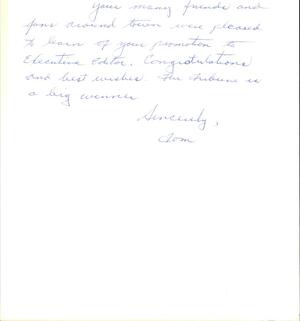 Your many friends and
fans around town were pleased
to learn of your promotion to
Executive Editor. Congratulations
and best wishes. The Tribune is
a big winner
Sincerely,
Tom